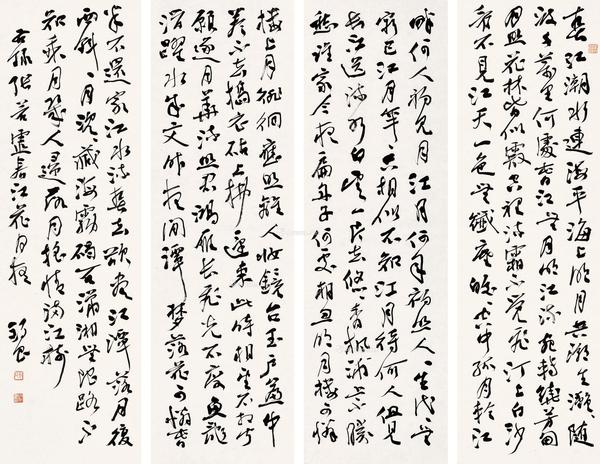 春江潮水連海平海上明月共潮生灩灩隨
波千萬里何處春江無月明江流宛轉繞芳甸
月照花林皆似霰空裡流霜不覺飛汀上白沙
看不見江天一色無纖塵皎皎空中孤月輪江
畔何人初見月江月何年初照人人生代代無
窮已江月年年只相似不知江月待何人但見
長江送流水白雲一片去悠悠青楓浦上不勝
愁誰家今夜扁舟子何處相思明月樓可憐
樓上月徘徊應照離人妝鏡台玉戶簾中
卷不去搗衣砧上拂還來此時相望不相聞
願逐月華流照君鴻雁長飛光不度魚龍
潛躍水成文昨夜閒潭夢落花可憐春
半不還家江水流春去欲盡江潭落月復
西斜斜月沉沉藏海霧碣石瀟湘無限路不
知乘月幾人歸落月搖情滿江樹
張若虛春江花月夜